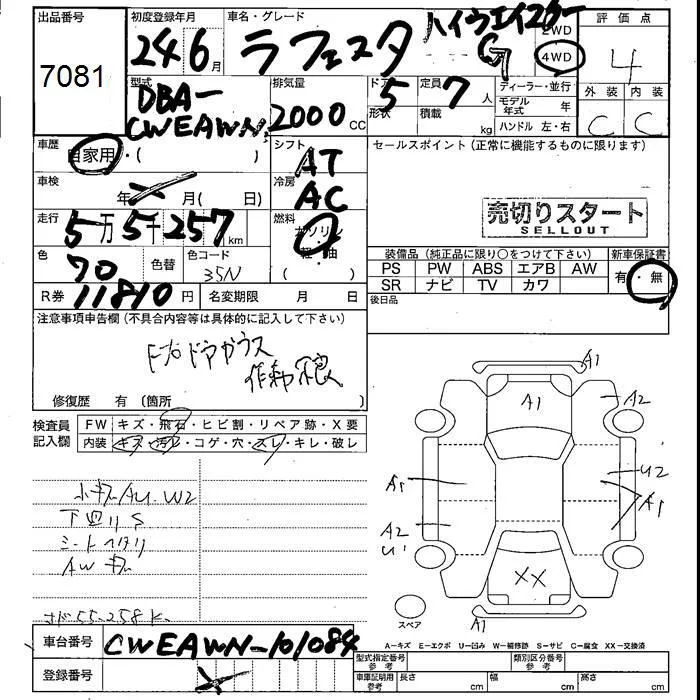 出品番号
7081
初度登録年月
24 6月
車名・グレード
ラフェスタ
ハイウェイスター
G
2WD
4WD
評価点
4
外装 内装
C C
型式
DBA-
CWEAWN
排気量
2000 CC
ドア
5
形状
定員
7 人
積載
kg
ディーラー・並行
モデル年式 年
ハンドル 左・右
車歴
自家用・( )
シフト
AT
セールスポイント(正常に機能するものに限ります)
車検
年 月( 日)
冷房
AC
売切りスタート
SELLOUT
走行
5万5千257km
燃料
ガソリン
・軽油
( )
色
70
色替
色コード
35N
装備品(純正品に限り○をつけて下さい)
新車保証書
PS PW ABS エアB AW
有・無
SR ナビ TV カワ
R券
11810円
名変期限 月 日
後日品
注意事項申告欄(不具合内容等は具体的に記入して下さい)
ドアガラス
作動不良
修復歴 有(箇所 )
検査員
記入欄
FW キズ・飛石・ヒビ割・リペア跡・X要
内装 キズ・汚レ・コゲ・穴・スレ・キレ・破レ
AU W2
下回りS
シートヘタリ
AW キズ
A1
A1
A2
U2
A1
A1
A2
U1
XX
A1
スペア
A−キズ E−エクボ U−凹み W−補修跡 S−サビ C−腐食 XX−交換済
車台番号
CWEAWN-101084
登録番号
型式指定番号
参考
類別区分番号
参考
車庫証明用
参考
長さ cm
幅 cm
高さ cm